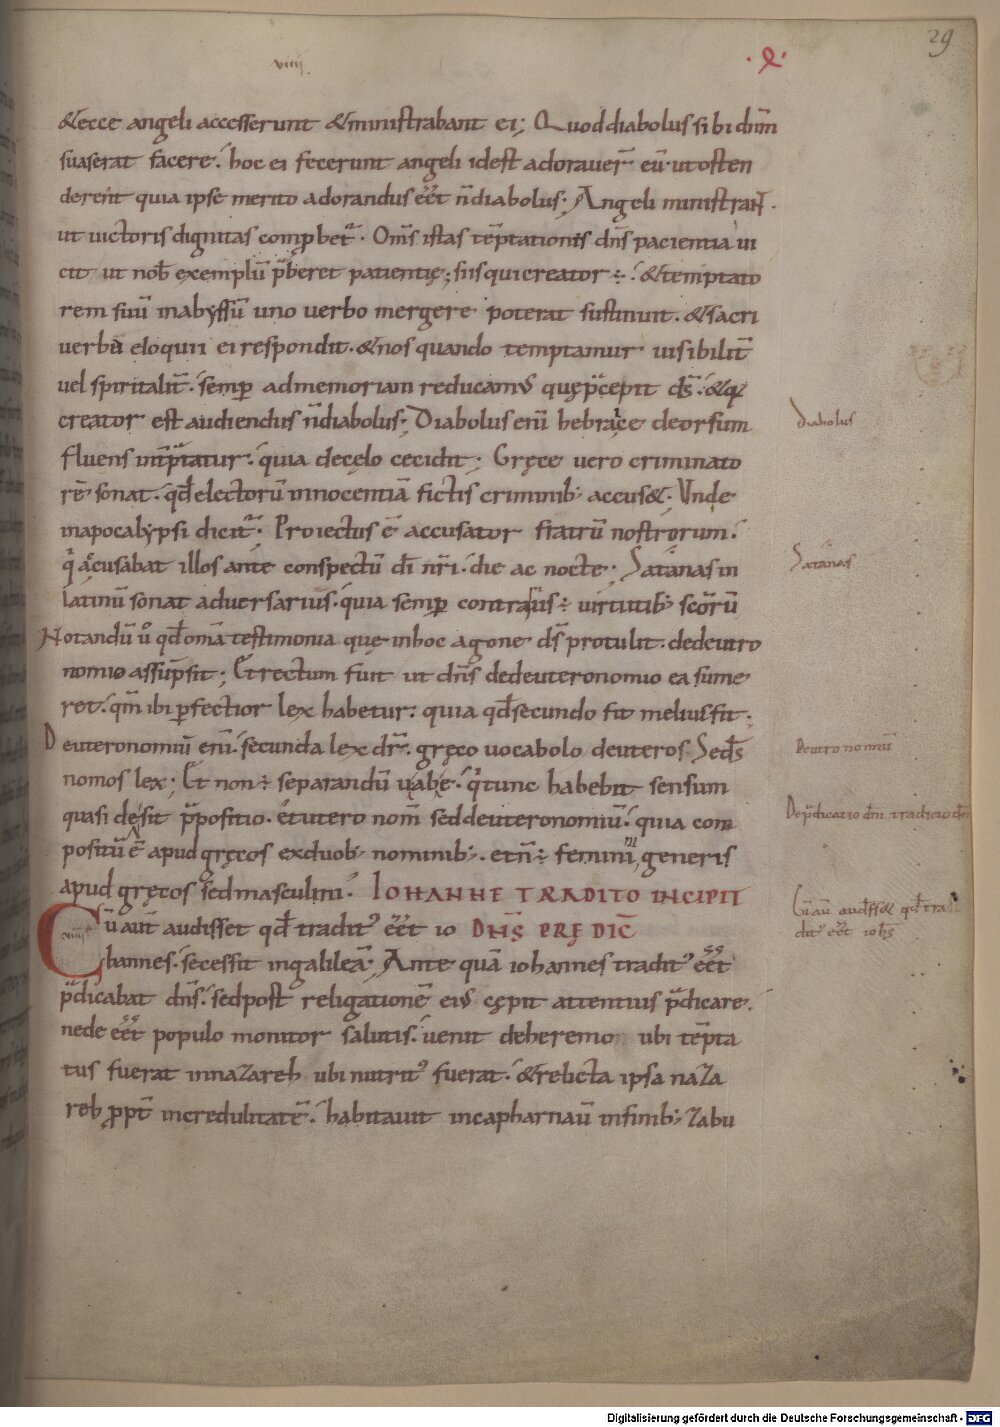 29
viiii.
·x·
&ecce angeli accesserunt &ministrabant ei; Quoddiabolus sibi dn̄m
suaserat facere. hoc ei fecerunt angeli idest adorauer̄ eū· utosten
derent quia ipse merito adorandus eēt n̄diabolus; Angeli ministrant·
ut uictoris dignitas comprobet᷑. Om̄s istas tēptationis dn̄s pacientia ui
cit, ut nob̄ exemplū p̄beret patientię; siusquicreator ÷. &temptato
rem suū inabyssū uno uerbo mergere poterat sustinuit. &sacri
uerbū eloquii ei respondit. &nos quando temptamur uisibilit̄
uel spiritalit̄. semp̄ admemoriam reducamus quęp̄cepit ds̄.
creator est audiendus n̄diabolus; Diabolus enī hebraice deorsum
fluens int̄p̄tatur. quia decęlo cecidit; Gręce uero criminato
rē sonat. qd̄electorū innocentiā fictis criminib; accus&. Unde
inapocalypsi dicit᷑. Proiectus ē accusator fratrū nostrorum.
q accusabat illos ante conspectū dī nr̄i. die ac nocte; Satanas in
latinū sonat aduersarius. quia semp̄ contrarius ÷ uirtutib; scōrū
Notandū ū qd̄omā testimonia quę inhoc agone ds̄ protulit. dedeutro
nomio assūpsit; Et rectum fuit ut dn̄s dedeuteronomio ea sume
ret. qm̄ ibi perfectior lex habetur. quia qd̄secundo fit meliusfit;
Deuteronomiū enī. secunda lex dr̄. gręco uocabolo deuteros Seds̄
nomos lex; Et non ÷ separandū uabe. q̄tunc habebit sensum
quasi desit p̄positio. etutero nom̄ seddeuteronomiū. quia com
positū ē apud gręcos exduob; nominib;. etn̄ ÷ feminini generis
apud gręcos sed masculini. IOHANNE TRADITO INCIPIT
Cū aut̄ audisset qd̄ tradit᷒ eēt io DN̄S PRĘDIC̄
hannes. secessit ingalileā; Ante quā iohannes tradit᷒ eēt
p̄dicabat dn̄s. sedpost religationē ei᷒ cępit attentius p̄dicare.
nede eēt populo monitor salutis. uenit deheremo ubi tēpta
tus fuerat innazareth ubi nutrit᷒ fuerat. &relicta ipsa naza
reh ꝓpt̄ incredulitatē. habitauit incapharnaū infinib; zabu
Diabolus
Satanas
Deutronomiū
Dep̄dicatio dn̄i traditio
Cū aū audiss& qd̄ tra
dit᷒ eēt iohs̄
Digitalisierung gefördert durch die Deutsche Forschungsgemeinschaft - DFG